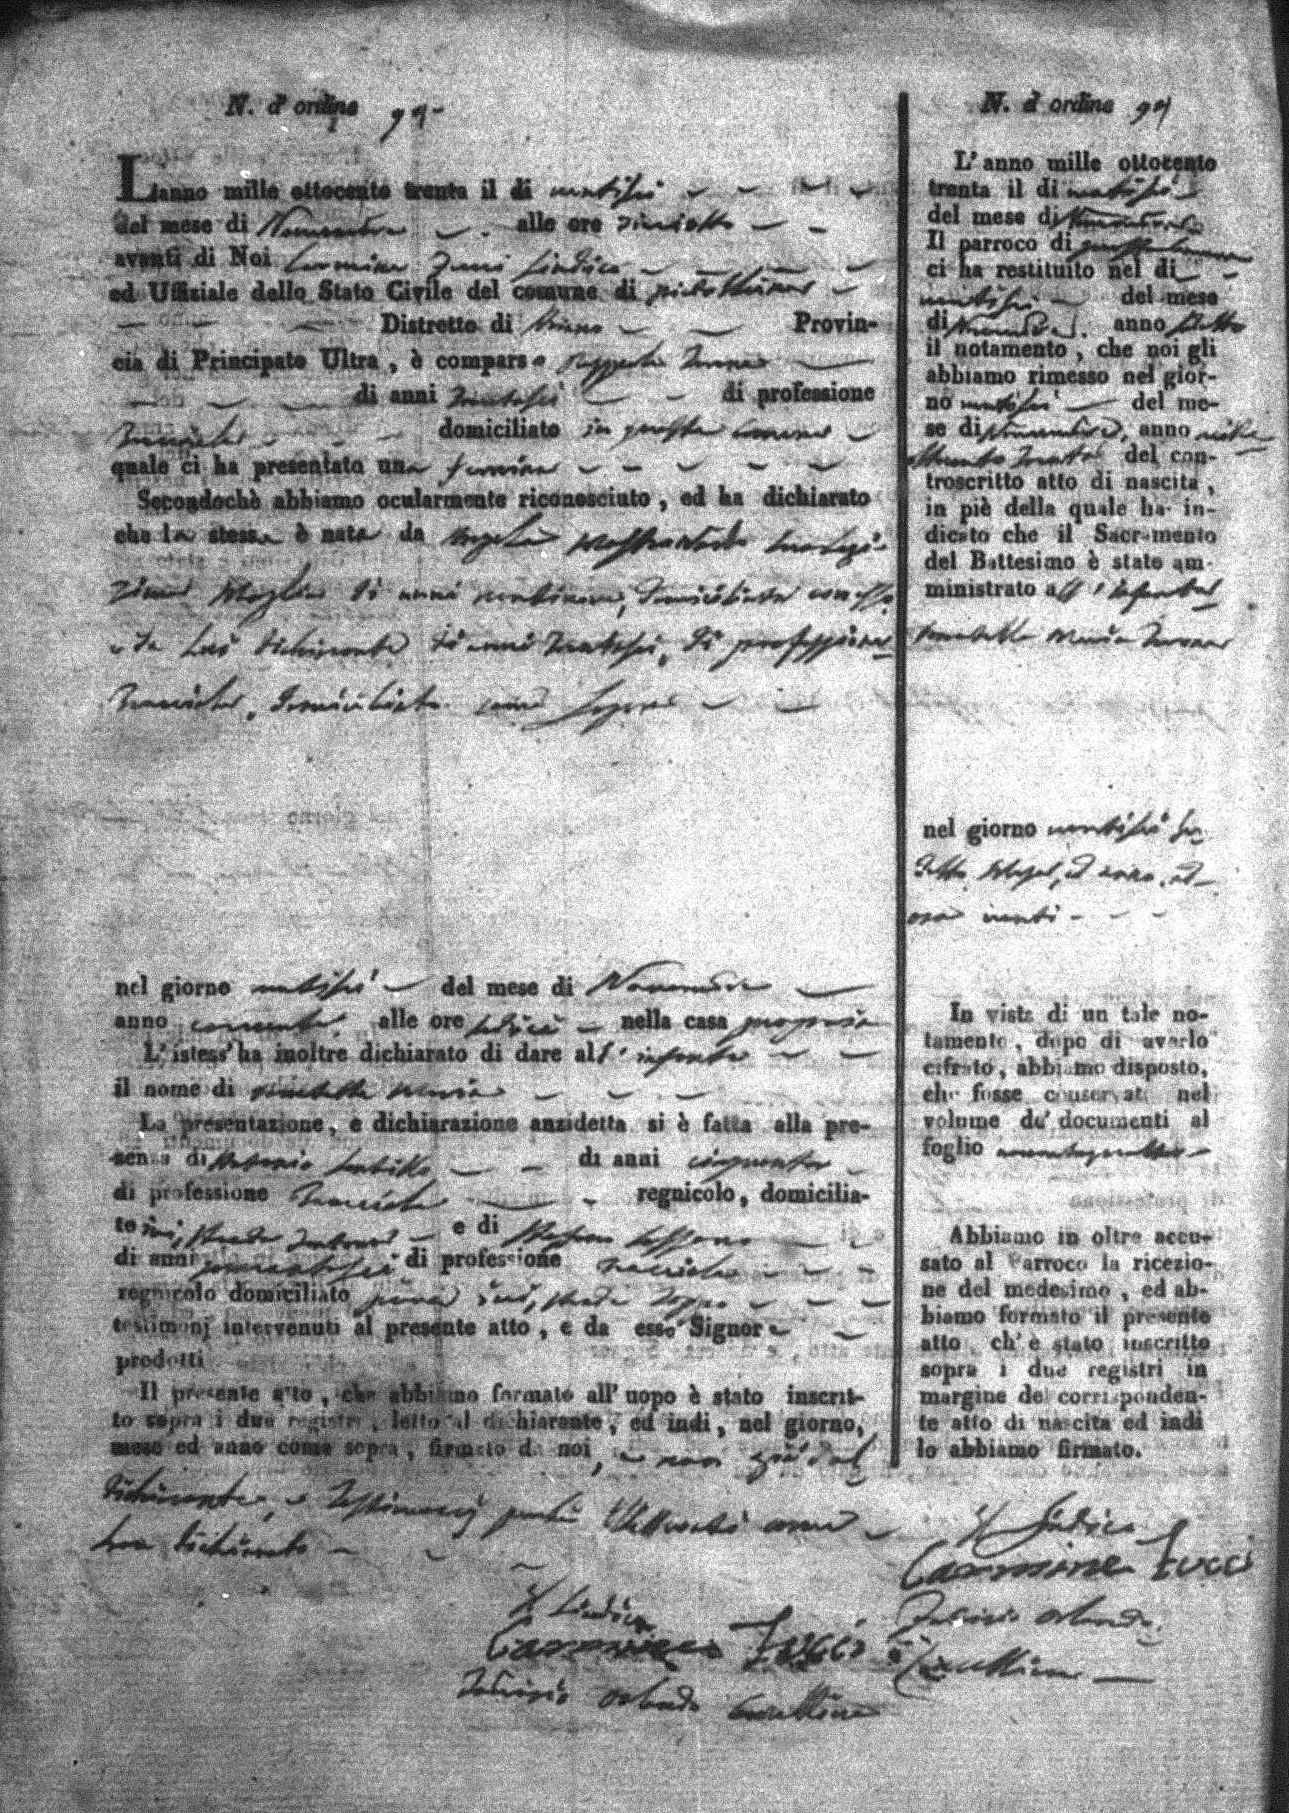 N. d' ordine 94
L'anno mille ottocento trenta il di ventisei
del mese di Novembre alle ore dieciotto
avanti di Noi Carmine Zucci Sindaco
ed Uffiziale dello Stato Civile del comune di
Distretto di Ariano Provin-
cia di Principato Ultra, è comparso Turro
di anni trentasei di professione
Bracciale domiciliato in questo comune
quale ci ha presentato una femina
Secondochè abbiamo ocularmente riconosciuto, ed ha dichiarato
che la stessa è nata da Angela
Moglie di anni domiciliata con esso
e da Lui dichiarante di anni trentasei, di professione
Bracciale, domiciliato come sopra
nel giorno ventisei del mese di Novembre
anno corrente alle ore sedici nella casa propria
L'istess' ha inoltre dichiarato di dare all' infanta
il nome di Donatella Maria
La presentazione, e dichiarazione anzidetta si è fatta alla pre-
senza di Antonio di anni cinquanta
di professione Bracciale regnicolo, domicilia-
to ivi, Strada e di
di anni di professione Bracciale
regnicolo domiciliato pure ivi, Strada
testimonj intervenuti al presente atto, e da esso Signor
prodotti
Il presente atto, che abbiamo formato all' uopo è stato inscrit-
to sopra i due registri, letto al dichiarante, ed indi, nel giorno,
mese ed anno come sopra, firmato da noi, e non già dal
dichiarante, e Testimonj perché illetterati come
han dichiarato
Il Sindaco
Carmine Zucci
Orlando Cancelliere
N. d' ordine 94
L' anno mille ottocento
trenta il di ventisei
del mese di Novembre
Il parroco di questo comune
ci ha restituito nel di
ventisei del mese
di Novembre anno
il notamento, che noi gli
abbiamo rimesso nel gior-
no ventisei del me-
se di Novembre, anno mille
ottocento trenta del con-
troscritto atto di nascita,
in piè della quale ha in-
dicato che il Sacramento
del Battesimo è stato am-
ministrato all' infanta
Donatella Maria
nel giorno ventisei su
detto mese, ed anno, ad
ora venti
In vista di un tale no-
tamento, dopo di averlo
cifrato, abbiamo disposto,
che fosse conservato nel
volume de' documenti al
foglio novantaquattro
Abbiamo in oltre accu-
sato al Parroco la ricezio-
ne del medesimo, ed ab-
biamo formato il presente
atto ch' è stato inscritto
sopra i due registri in
margine del corrisponden-
te atto di nascita ed indi
lo abbiamo firmato.
Il Sindaco
Carmine Zucci
Orlando
Cancelliere